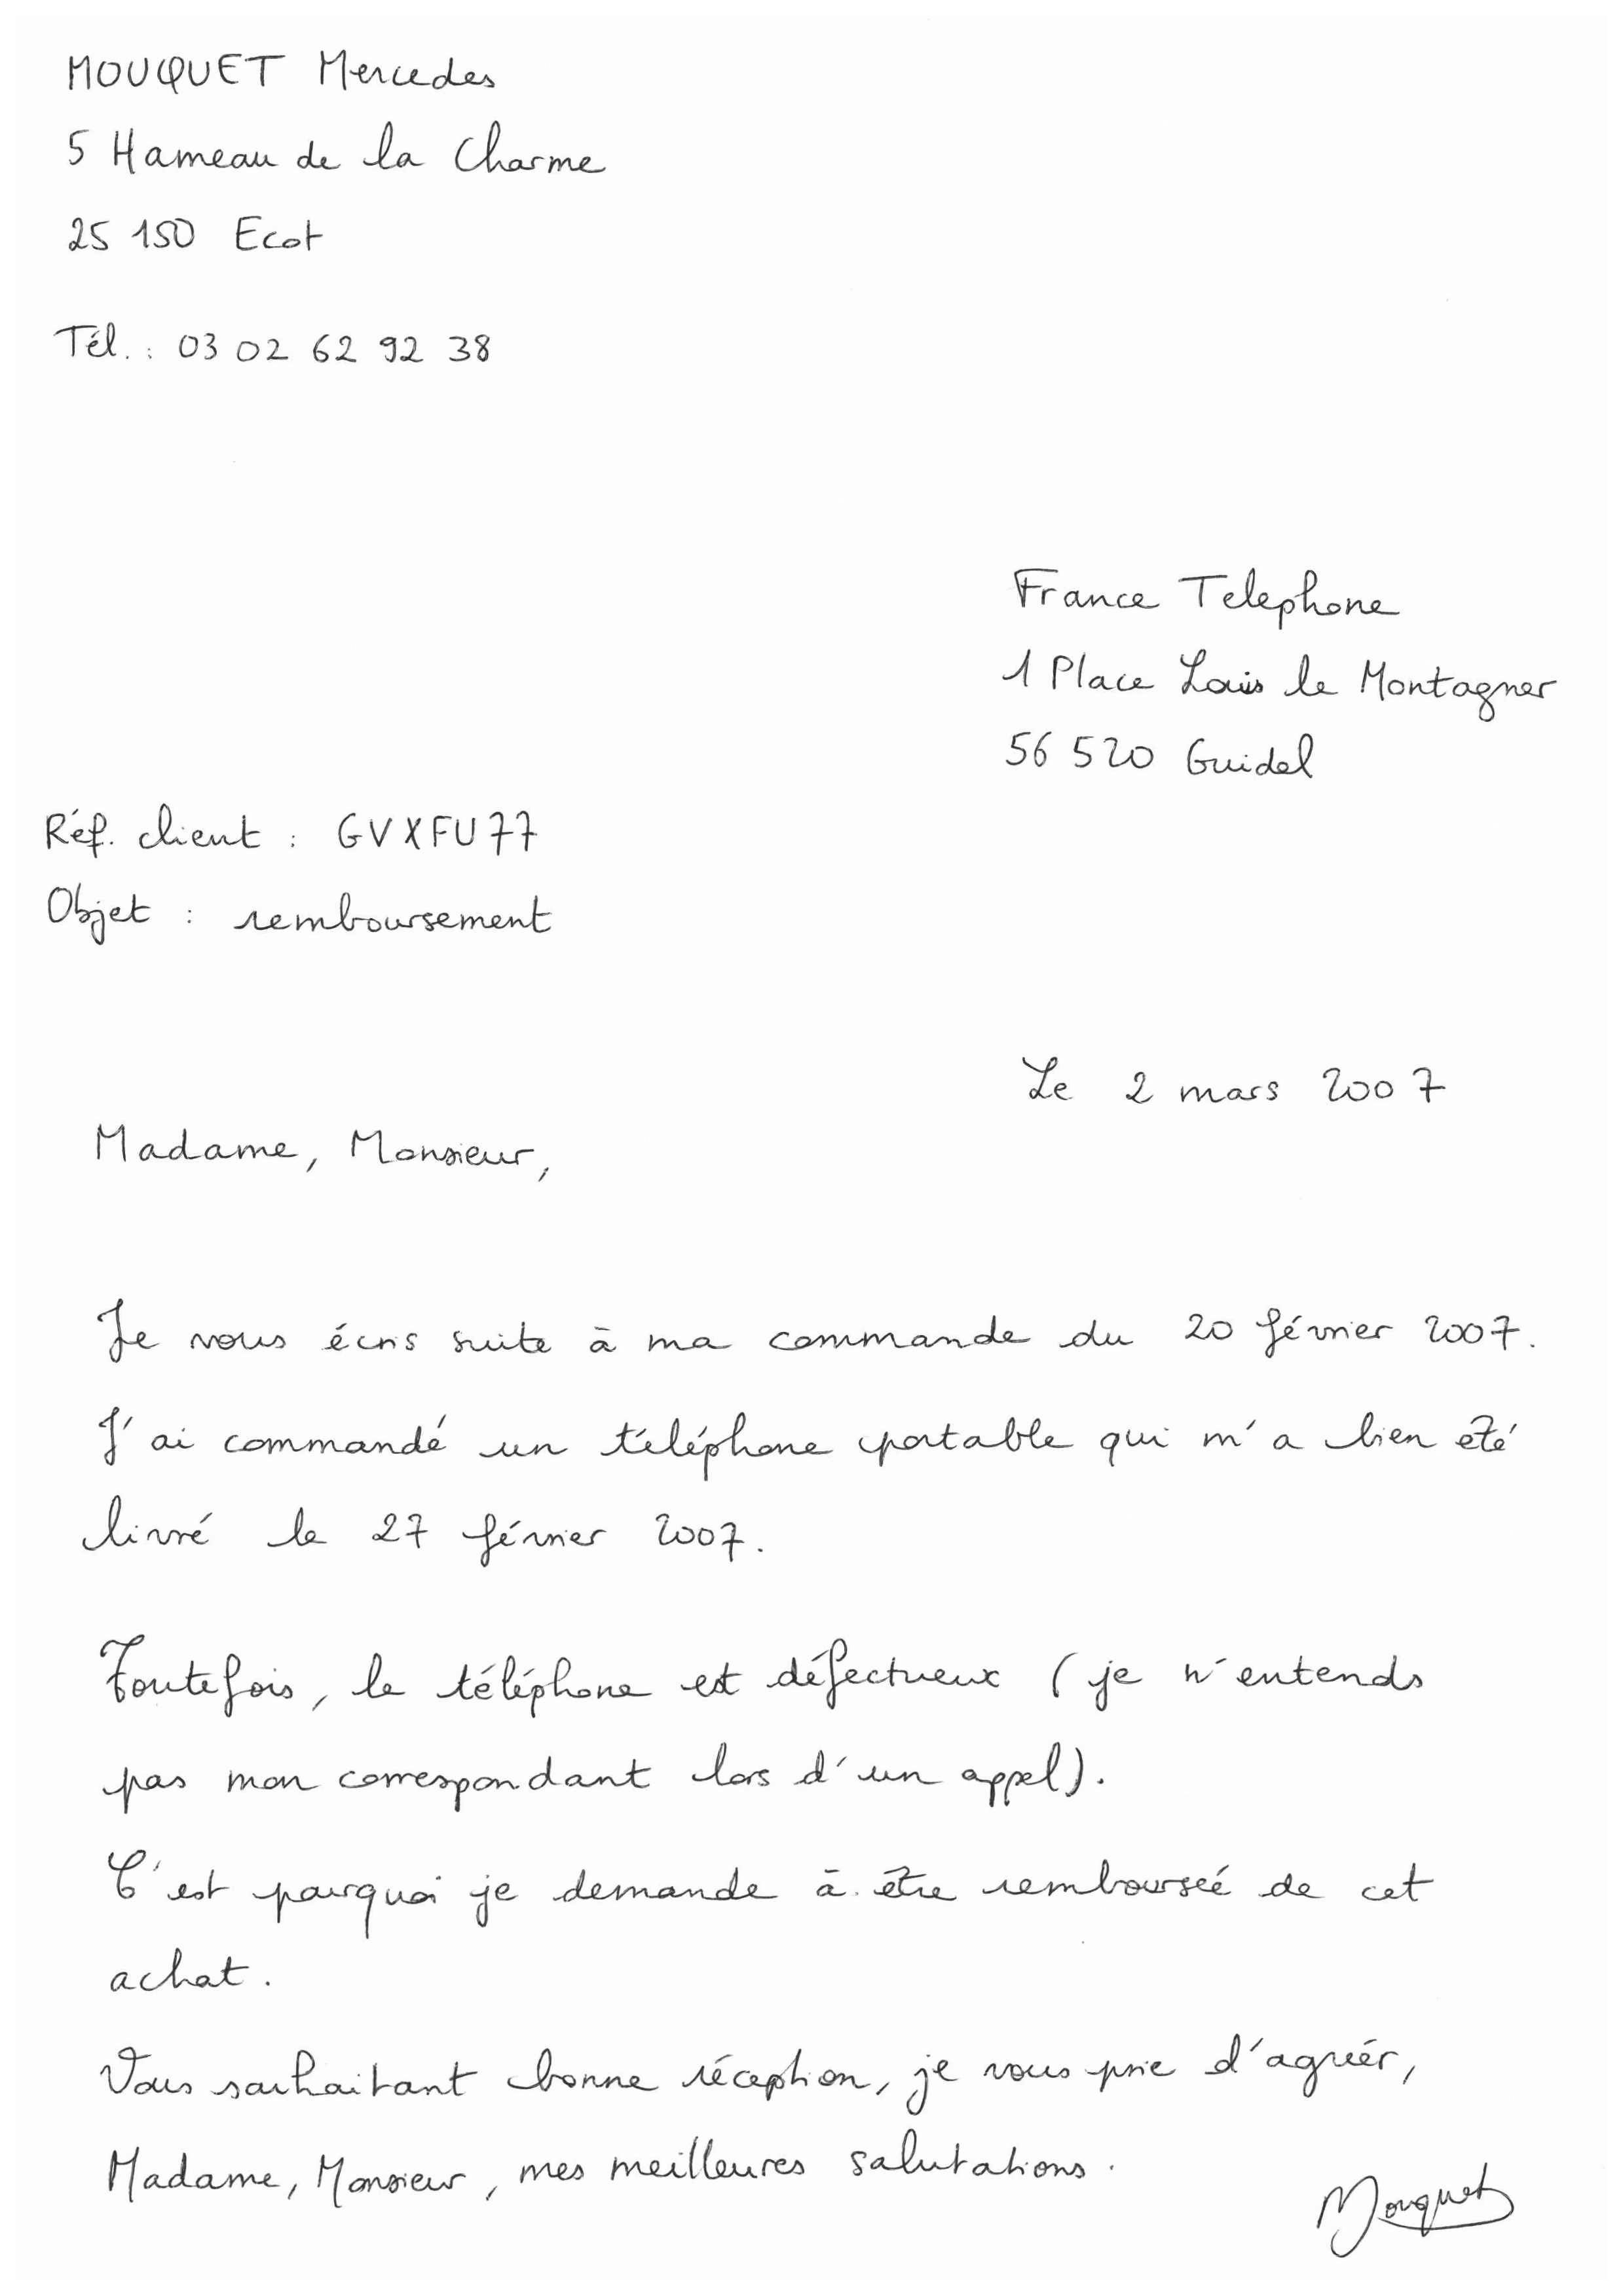 MOUQUET Mercedes
5 Hameau de la Charme
25 150 Ecot
Tél. : 03 02 62 92 38
France Telephone
1 Place Louis le Montagner
56 520 Guidel
Réf. client : GVXFU77
Objet : remboursement
Le 2 mars 2007
Madame, Monsieur,
Je vous écris suite à ma commande du 20 février 2007.
J'ai commandé un téléphone portable qui m'a bien été
livré le 27 février 2007.
Toutefois, le téléphone est défectueux (je n'entends
pas mon correspondant lors d'un appel).
C'est pourquoi je demande à être remboursée de cet
achat.
Vous souhaitant bonne réception, je vous prie d'agréer,
Madame, Monsieur, mes meilleures salutations.
Mouquet